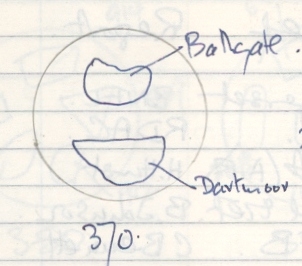 Ballsgate.
Dartmoor
370.